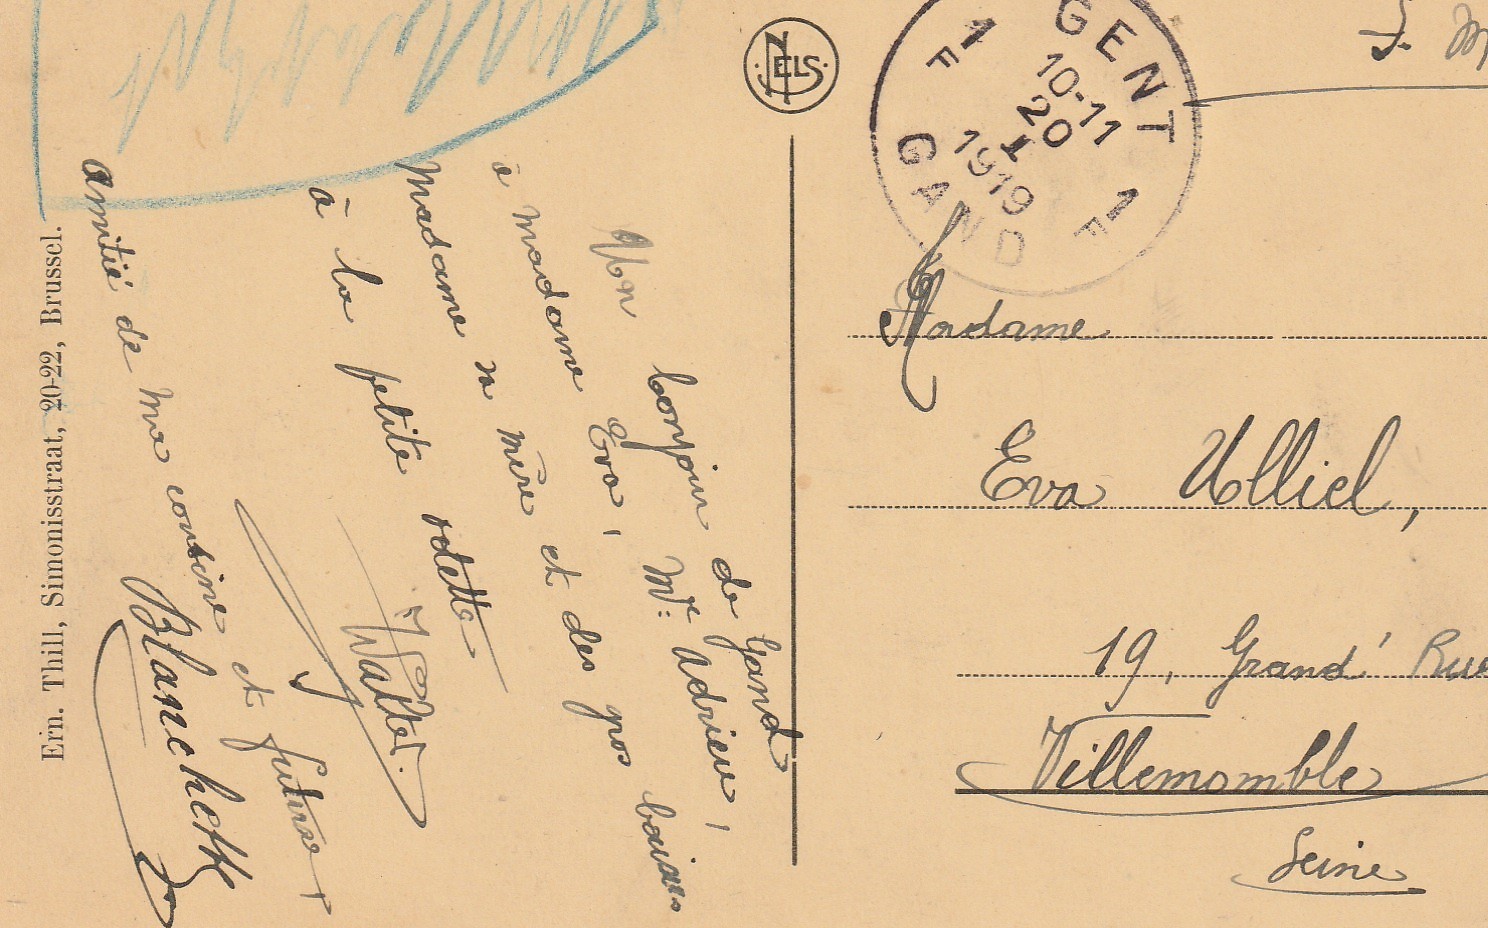 Un bonjour de Gand
à madame Eva, Mr. Adrien,
Madame sa mère et des gros baisers
à la petite Odette
Walter.
amitié de ma cousine et future
Blanchette
Ern. Thill, Simonisstraat, 20-22, Brussel.
NELS
GENT
1 F
10-11
20
I
1919
1 F
GAND
S. M
Madame
Eva Ulliel,
19, Grande Rue
Villemomble
Seine